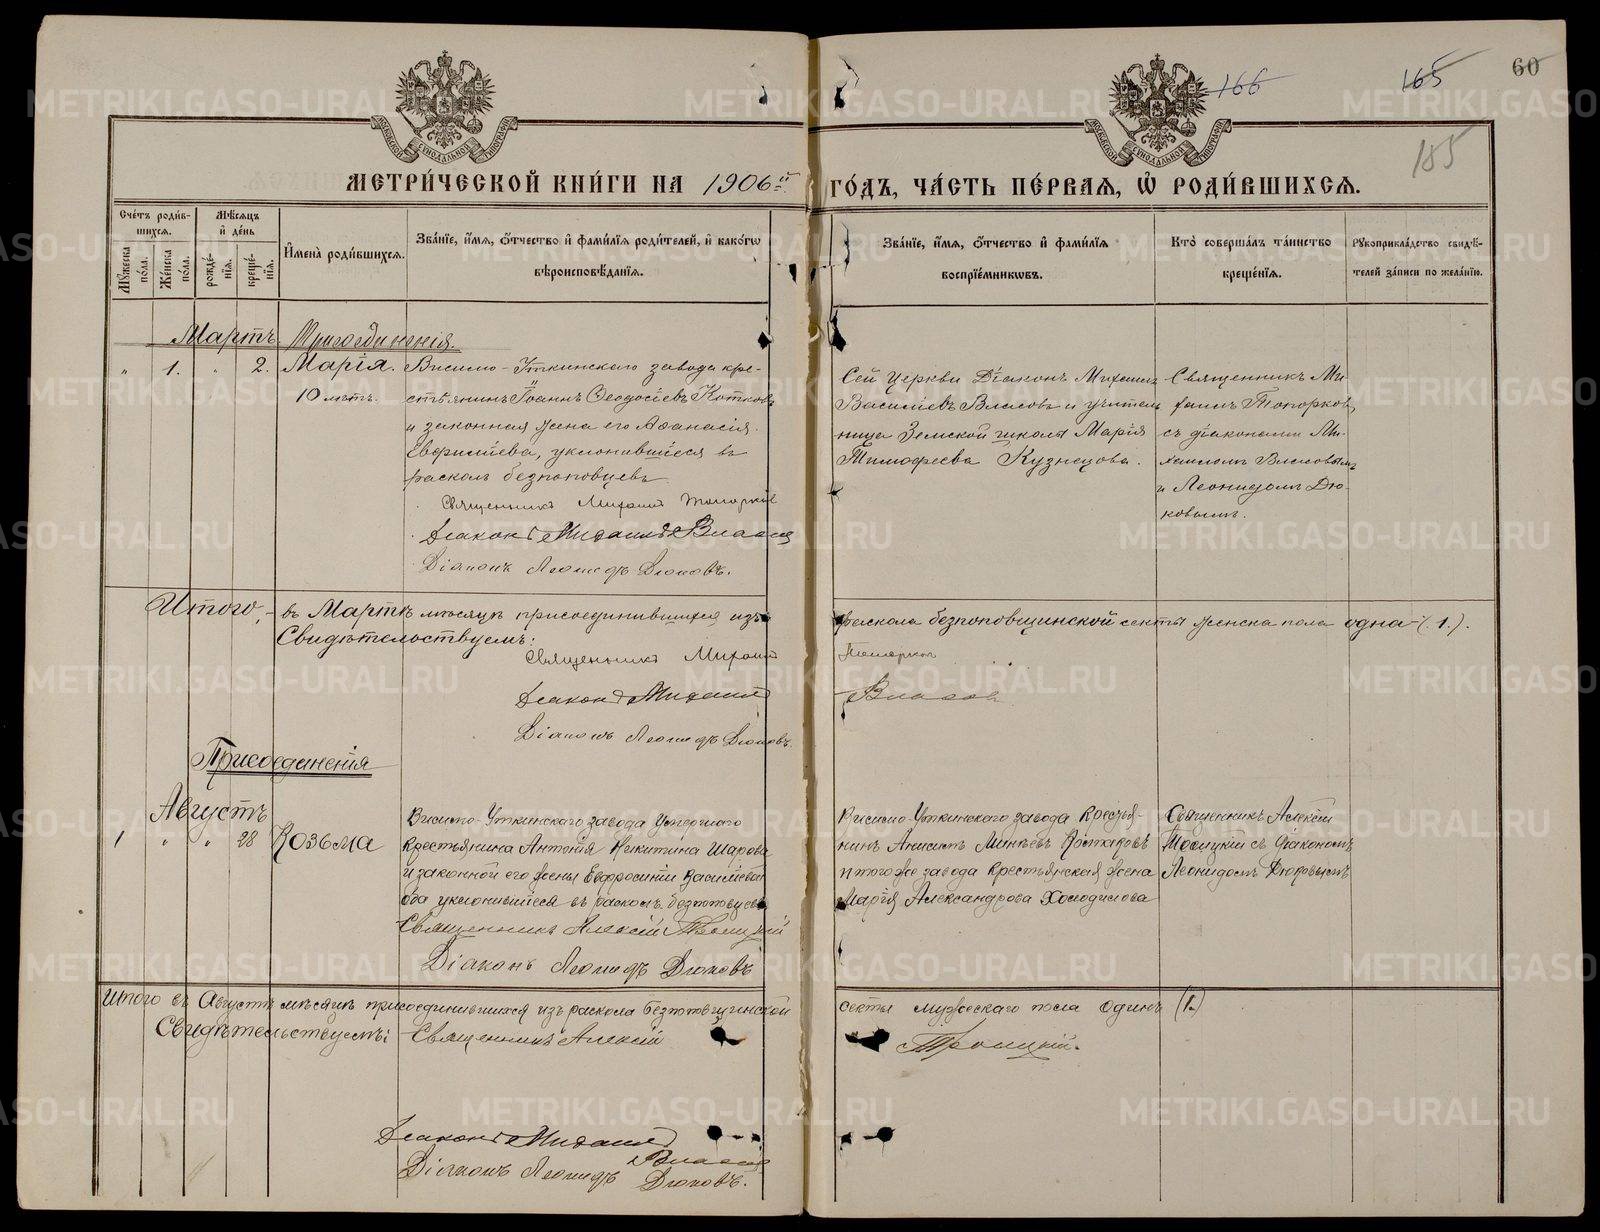 166
165
60
185
МЕТРИ́ЧЕСКОЙ КНИ́ГИ НА 1906 й ГО́ДЪ, ЧА́СТЬ ПЕ́РВАЯ, Ѡ РОДИ́ВШИХСЯ.
Сче́тъ роди́вшихся.
Му́жеска по́ла.
Же́нска по́ла.
Мѣ́сяцъ и де́нь
рожде́нїя.
креще́нїя.
Имена̀ роди́вшихся.
Зва́нїе, и́мя, ѻ́тчество и фами́лїя роди́телей, и како́гѡ вѣроисповѣ́данїя.
Зва́нїе, и́мя, ѻ́тчество и фами́лїя воспрїе́мниковъ.
Кто̀ соверша́лъ та́инство креще́нїя.
Рꙋкоприкла́дство свидѣ́телей за́писи по жела́нїю.
Мартъ. Присоединенія.
" 1. " 2. Марія.
10 лѣтъ.
Висимо-Уткинскаго завода кре-
стьянинъ Іоаннъ Ѳеодосіевъ Котковъ
и законная жена его Аѳанасія
Евфиміева, уклонившіеся въ
расколъ безпоповцевъ
Священникъ Михаилъ Топорковъ
Діаконъ Михаилъ Власовъ
Діаконъ Леонидъ Дюковъ.
Сей Церкви Діаконъ Михаилъ
Васильевъ Власовъ и учитель
ница Земской школы Марія
Тимофеева Кузнецова.
Священникъ Ми-
хаилъ Топорковъ
съ діаконами Ми-
хаиломъ Власовымъ
и Леонидомъ Дю-
ковымъ.
Итого, въ Мартѣ мѣсяцѣ присоединившихся изъ раскола безпоповщинской секты женска пола одна (1.).
Свидѣтельствуемъ:
Священникъ Михаилъ Топорковъ
Діаконъ Михаилъ Власовъ
Діаконъ Леонидъ Дюковъ.
Присоединенія
Августъ
1 " " 28 Козьма
Висимо-Уткинскаго завода умершаго
крестьянина Антонія Никитина Шарова
и законной его жены Евфросиніи Васильевой
оба уклонившіеся въ расколъ безпоповцевъ
Священникъ Алексій Троицкій
Діаконъ Леонидъ Дюковъ
Висимо-Уткинскаго завода крестья-
нинъ Анисимъ Минѣевъ
и того же завода крестьянская жена
Марія Александрова Холодилова
Священникъ Алексій
Троицкій съ діакономъ
Леонидомъ Дюковымъ
Итого въ Августѣ мѣсяцѣ присоединившихся изъ раскола безпоповщинской секты мужескаго пола одинъ (1.)
Свидѣтельствуемъ: Священникъ Алексій Троицкій.
Діаконъ Михаилъ Власовъ
Діаконъ Леонидъ Дюковъ.
METRIKI.GASO-URAL.RU